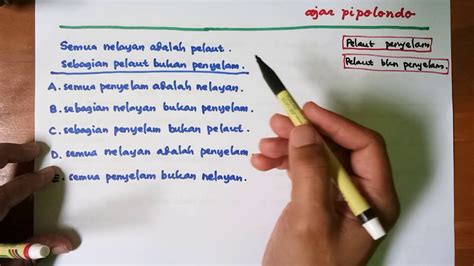 ajar pipolondo
Semua nelayan adalah pelaut.
Sebagian pelaut bukan penyelam.
Pelaut penyelam
Pelaut bkn penyelam.
A. semua penyelam adalah nelayan.
B. sebagian nelayan bukan penyelam.
C. sebagian penyelam bukan pelaut.
D. semua nelayan adalah penyelam
E. semua penyelam bukan nelayan.